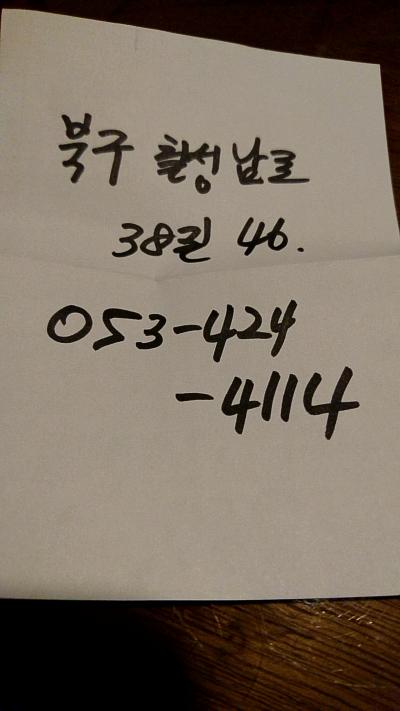 북구 칠성남로
38길 46.
053-424
-4114